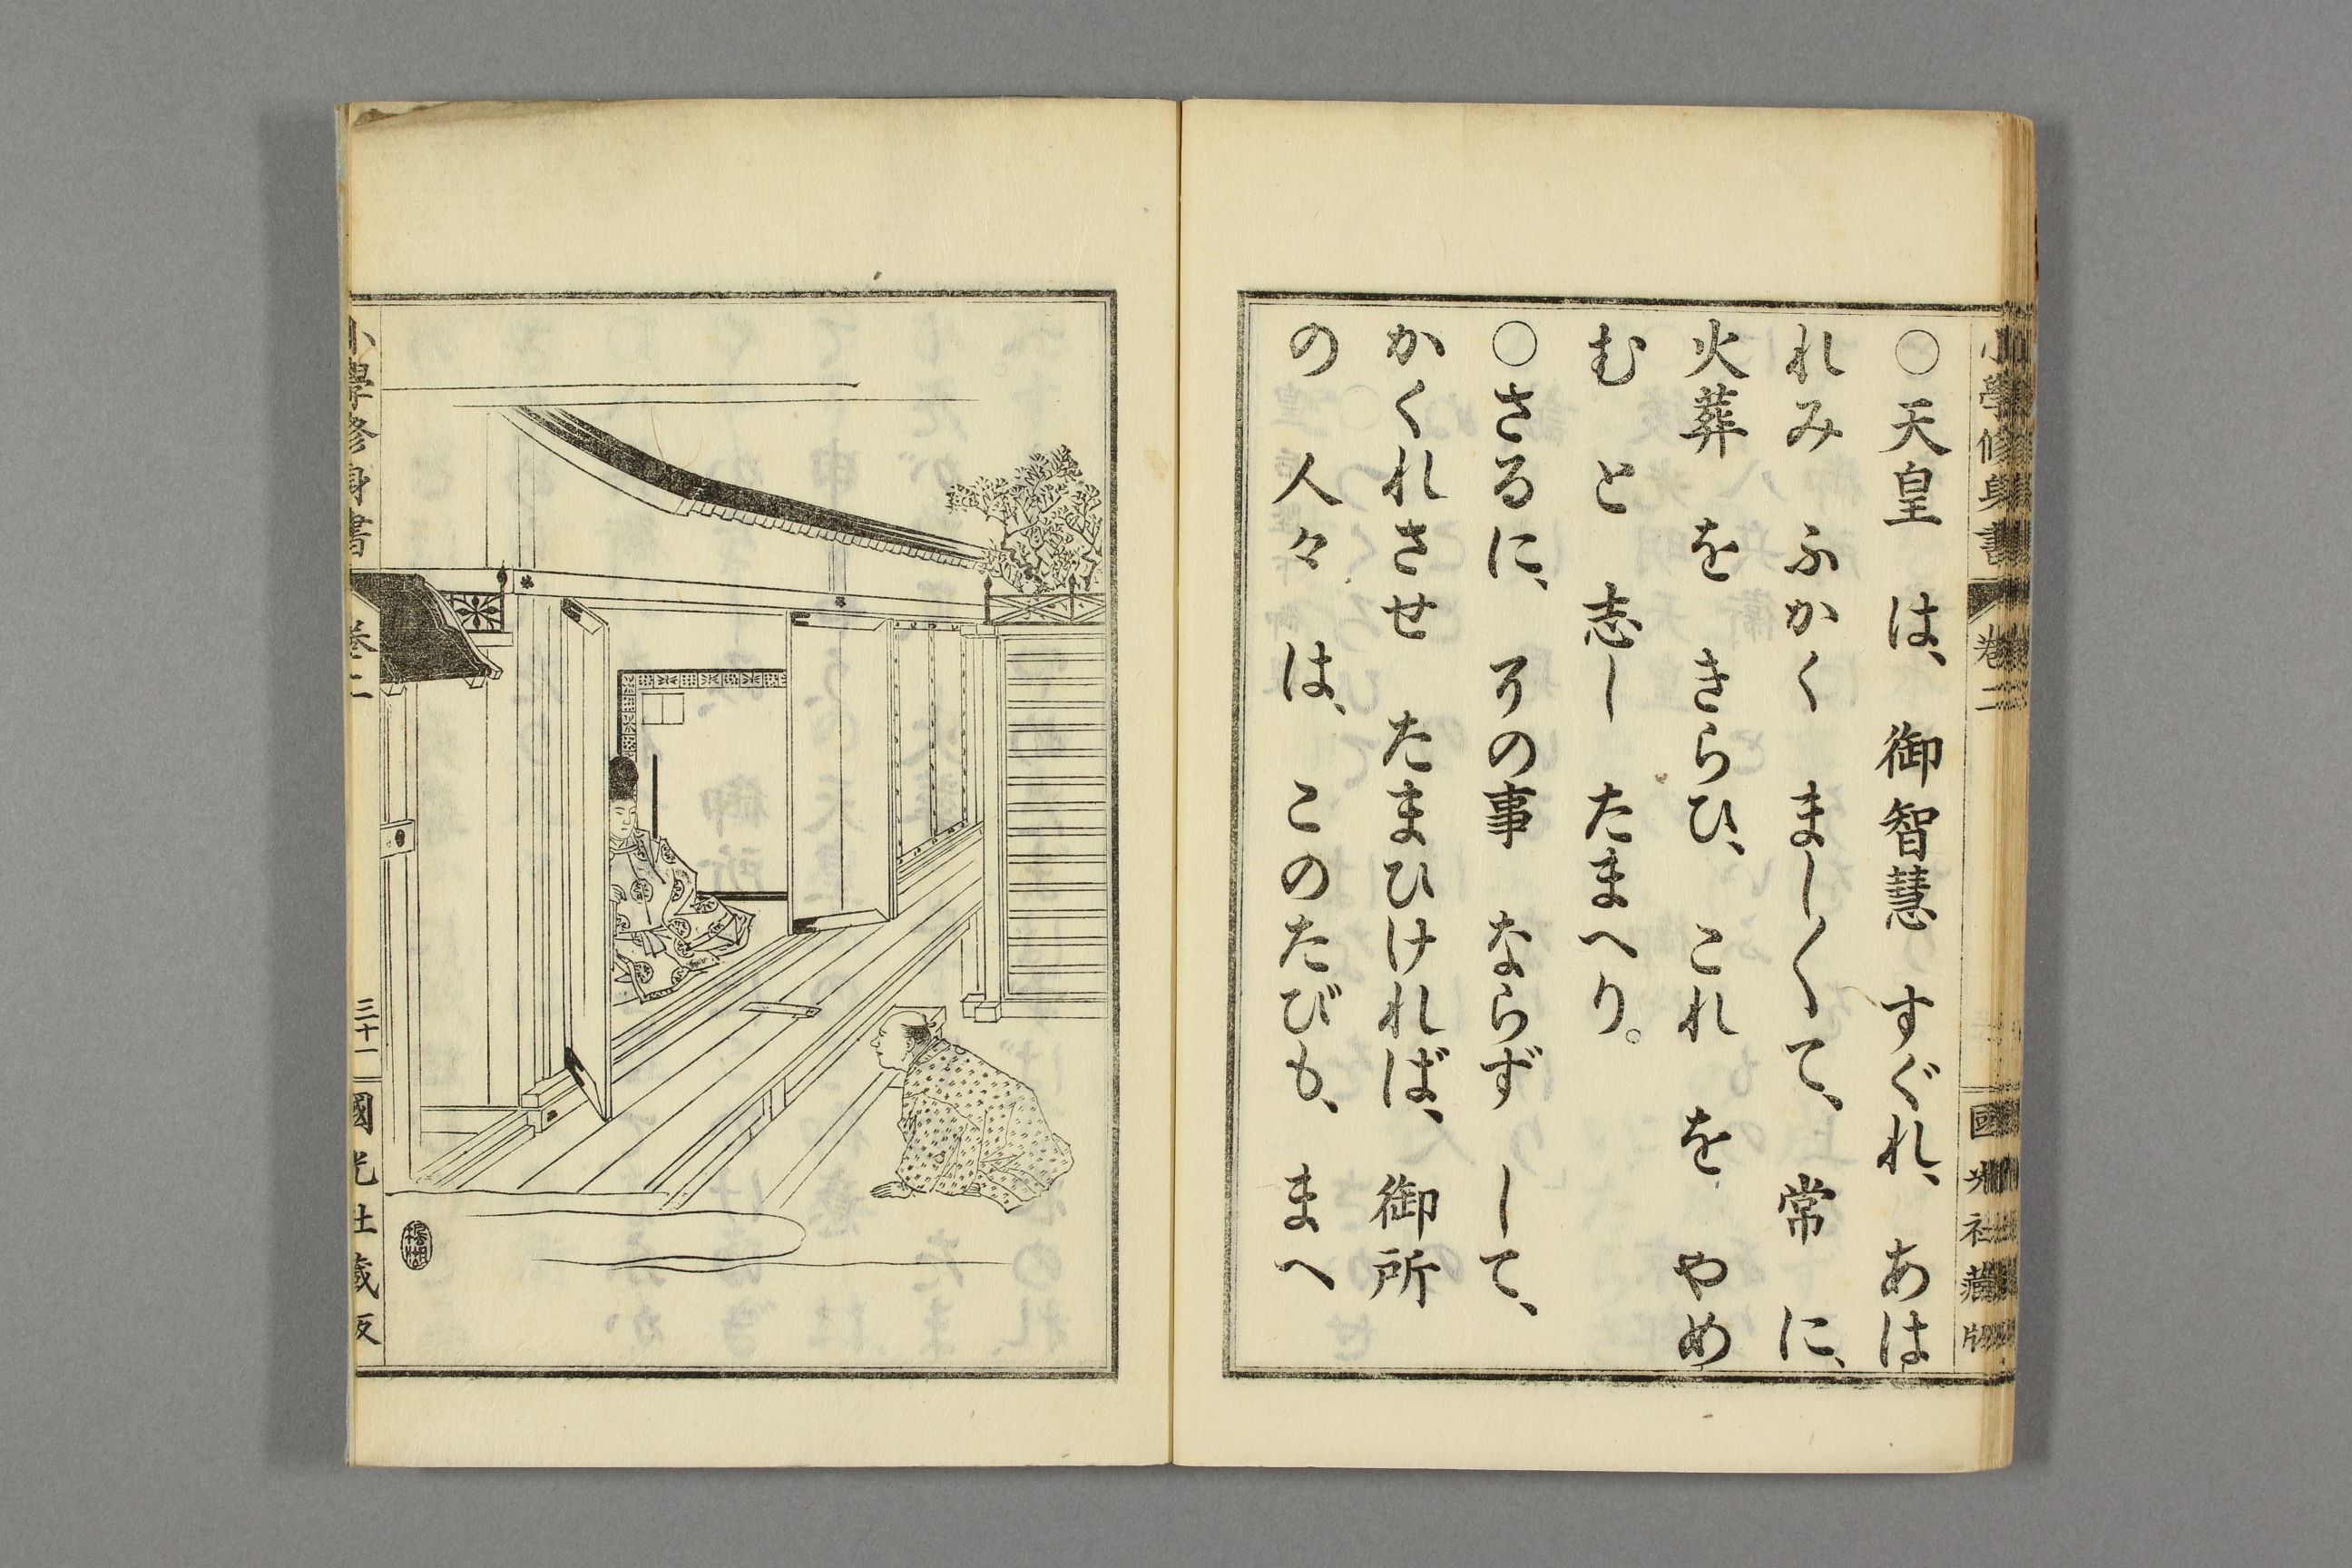 小學修身書 卷二 國光社藏版
○天皇 は、 御智慧 すぐれ、 あは
れみ ふかく まし〳〵て、 常 に、
火葬 を きらひ、 これ を やめ
む と 志し たまへり。
○さるに、 その事 ならず して、
かくれさせ たまひければ、 御所
の 人々 は、 このたびも、 まへ
小學修身書 卷二 三十一 國光社藏版